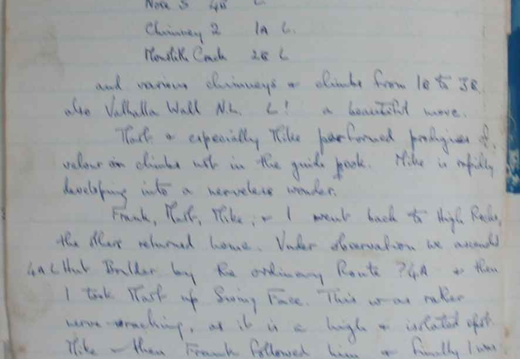 Nose 3 4B L
Chimney 2 1A L.
Monolith Crack 2B L
and various chimneys & climbs from 1B to 3B.
also Valhalla Wall N.L. L! a beautiful move.
Matt & especially Mike performed prodigies of
velour on climbs not in the guide book. Mike is rapidly
developing into a nerveless wonder.
Frank, Matt, Mike, & I went back to High Rocks,
the others returned home. Under observation we ascended
4A L Hut Boulder by the ordinary Route ?4A & then
I took Matt up Swing Face. This was rather
nerve-wracking, as it is a high & isolated
Mike then Frank followed him & finally I was